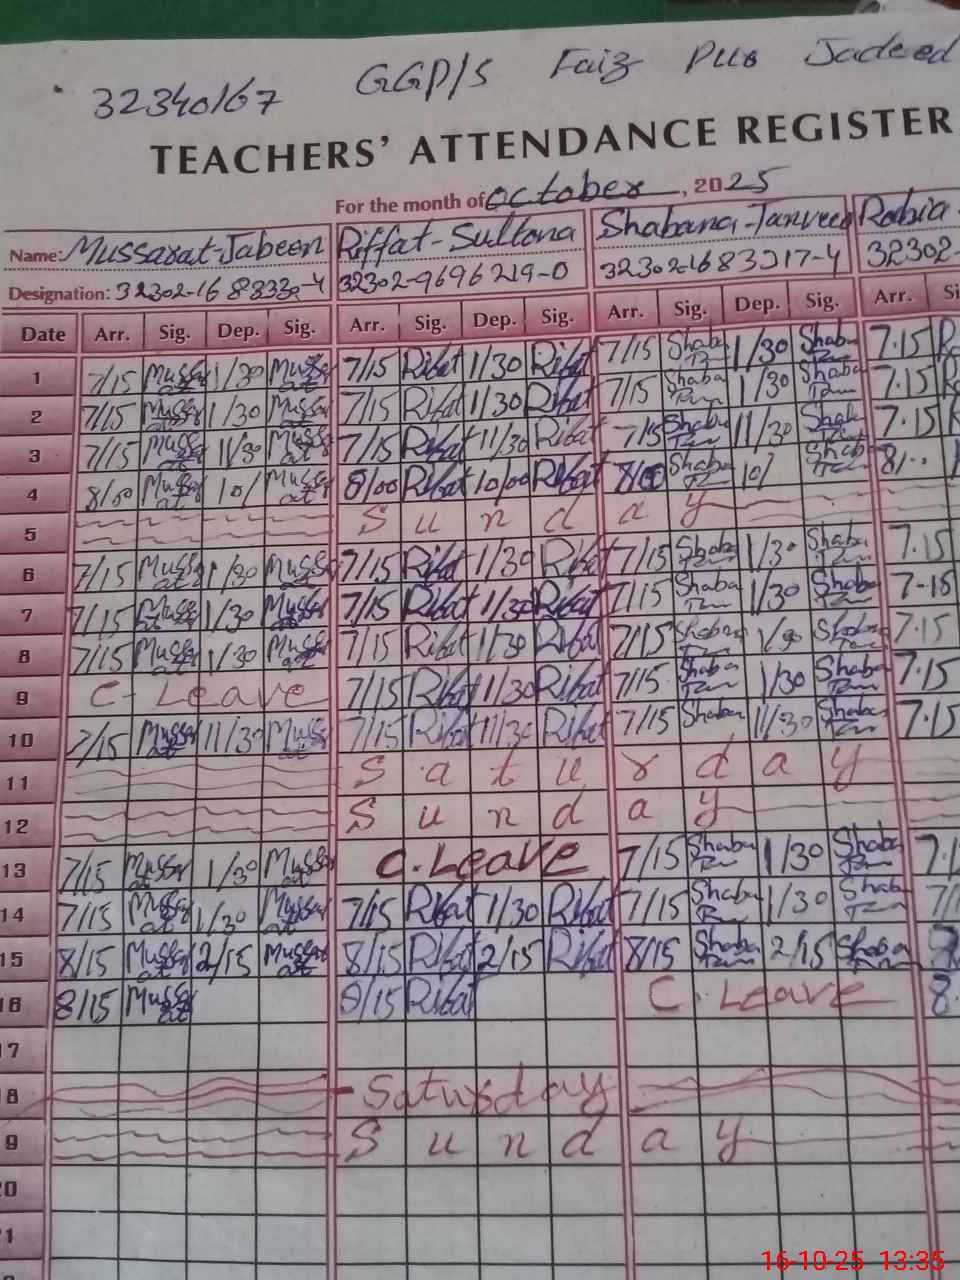 32340167 GGP/S Faiz Pur Jadeed
TEACHERS' ATTENDANCE REGISTER
For the month of October, 2025
Name: Mussarat-Jabeen Riffat-Sultana Shabana-Tanveer Rabia
Designation: 32302-9696219-0 32302-
Date Arr. Sig. Dep. Sig. Arr. Sig. Dep. Sig. Arr. Sig. Dep. Sig. Arr.
1 7/15 Mussar at 1/30 Mussar at 7/15 Rifat 1/30 Rifat 7/15 Shaba 1/30 Shaba 7.15
2 7/15 Mussar at 1/30 Mussar at 7/15 Rifat 1/30 Rifat 7/15 Shaba 1/30 Shaba 7.15
3 7/15 Mussar at 11/30 at 7/15 Rifat 11/30 Rifat 7/15 Shaba 11/30 Shaba 7.15
4 8/00 Mussar at 10/ Mussar at 8/00 Rifat 10/00 Rifat 8/00 Shaba 10/ Shab 8/..
5 Sunday
6 7/15 Mussar at 1/30 Mussar at 7/15 Rifat 1/30 Rifat 7/15 Shaba 1/30 Shaba 7.15
7 7/15 Mussar at 1/30 Mussar at 7/15 Rifat 1/30 Rifat 7/15 Shaba 1/30 Shaba 7-15
8 7/15 Mussar at 1/30 Mussar at 7/15 Rifat 1/30 Rifat 7/15 Shaba 1/30 Shaba 7.15
9 C-Leave 7/15 Rifat 1/30 Rifat 7/15 Shaba 1/30 Shaba 7.15
10 7/15 Mussar at 11/30 Mussar at 7/15 Rifat 11/30 Rifat 7/15 Shaba 11/30 Shaba 7.15
11 Saturday
12 Sunday
13 7/15 Mussar at 1/30 Mussar at C.Leave 7/15 Shaba 1/30 Shaba 7.1
14 7/15 Mussar at 1/30 Mussar at 7/15 Rifat 1/30 Rifat 7/15 Shaba 1/30 Shaba 7/1
15 8/15 Mussar at 2/15 Mussar at 8/15 Rifat 2/15 Rifat 8/15 Shaba 2/15 Shaba
16 8/15 Mussar at 8/15 Rifat C. Leave 8.
17
18 Saturday
19 Sunday
20
21
16-10-25 13:35